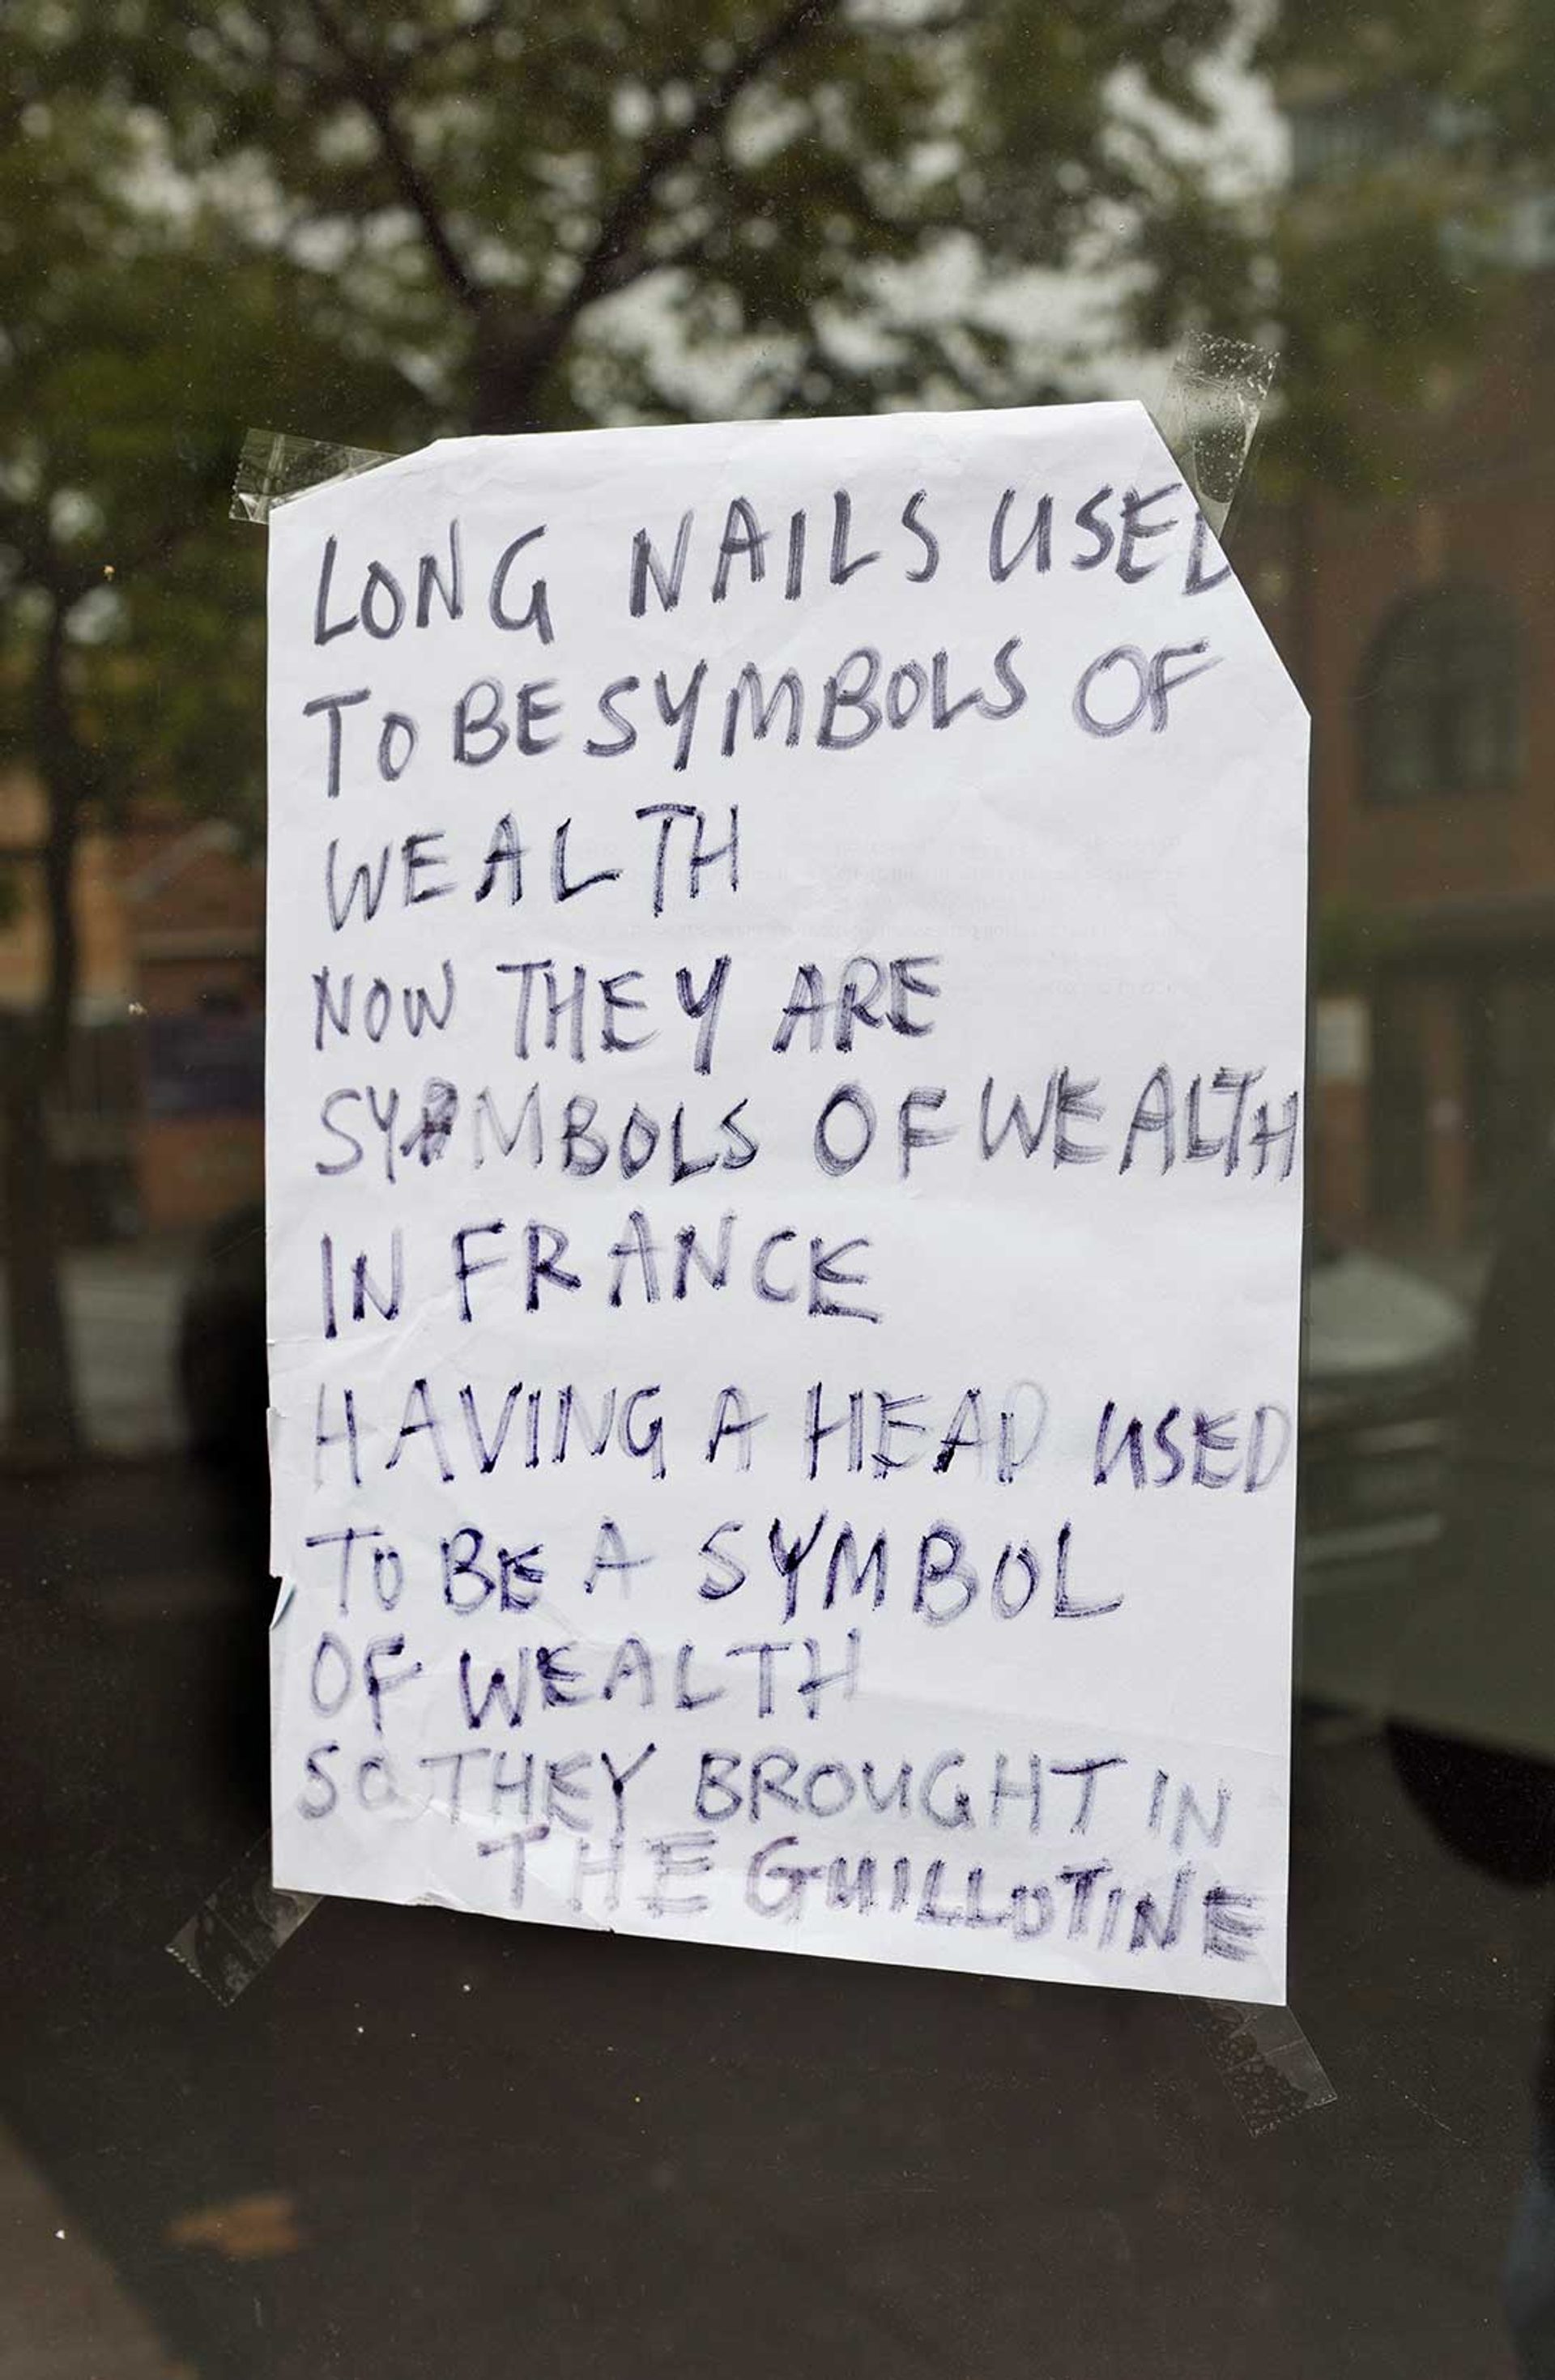 LONG NAILS USED
TO BE SYMBOLS OF
WEALTH
NOW THEY ARE
SYMBOLS OF WEALTH
IN FRANCE
HAVING A HEAD USED
TO BE A SYMBOL
OF WEALTH
SO THEY BROUGHT IN
THE GUILLOTINE